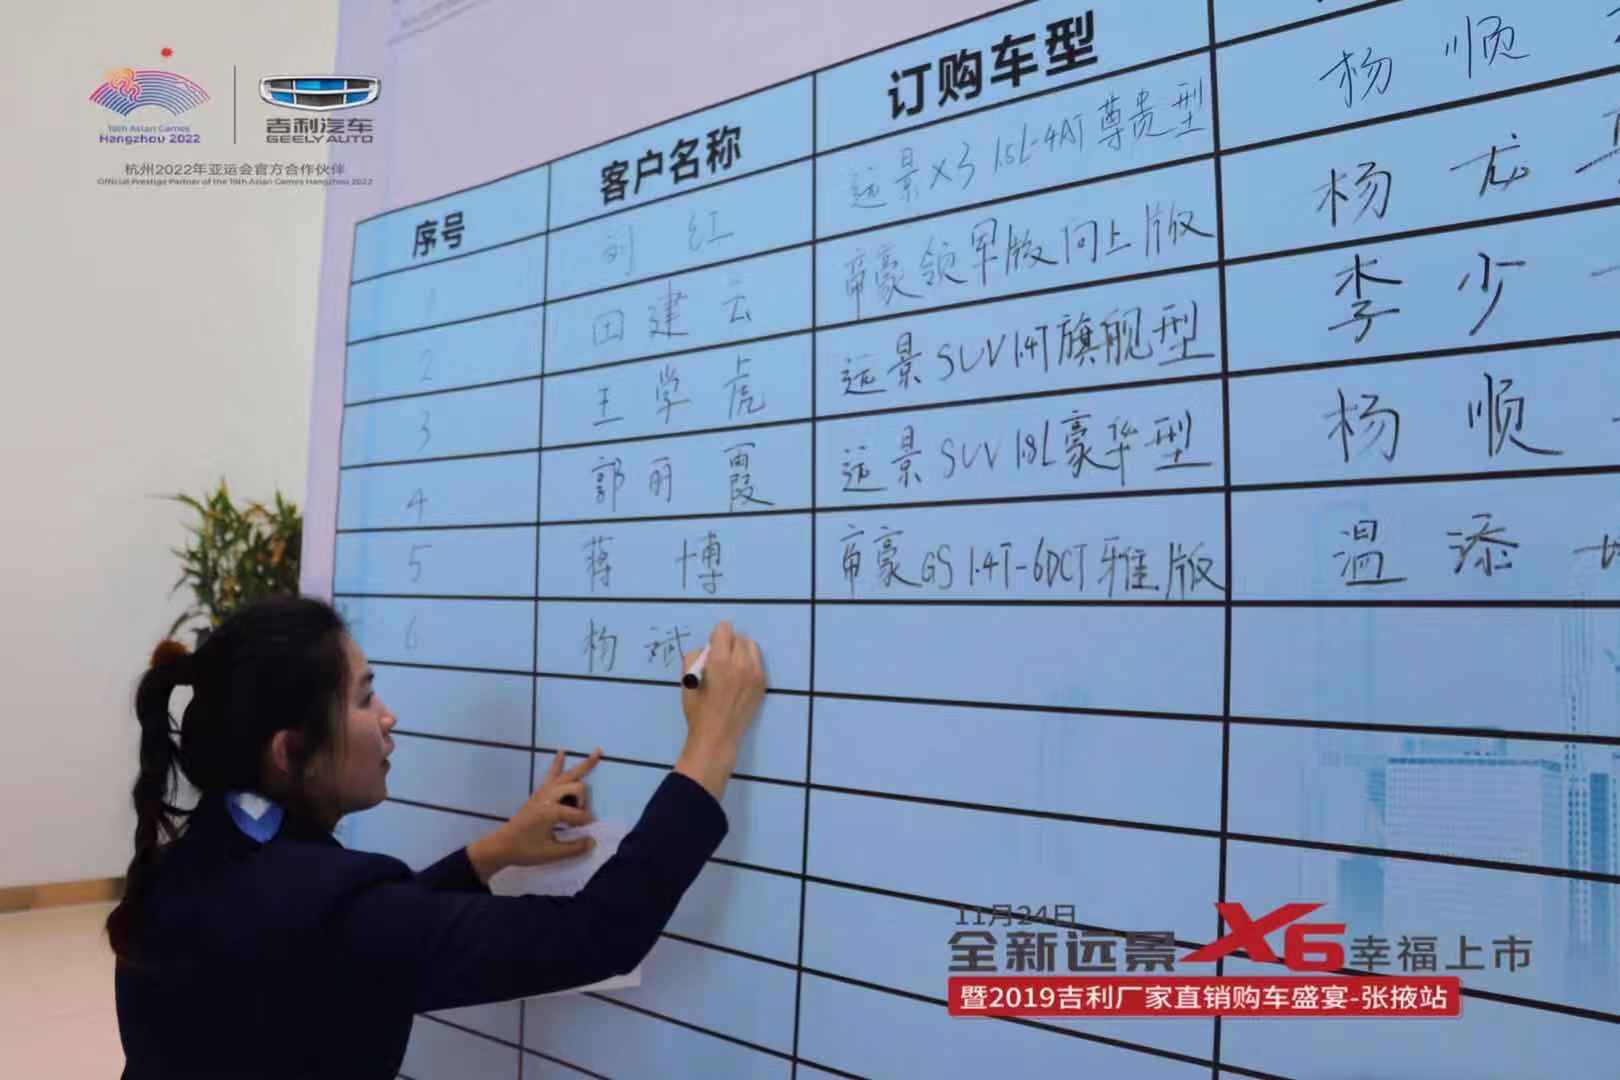 16th Asian Games
Hangzhou 2022
吉利汽车
GEELY AUTO
杭州2022年亚运会官方合作伙伴
Official Prestige Partner of the 16th Asian Games Hangzhou 2022
序号 客户名称 订购车型
1 刘红 远景X3 1.5L-4AT尊贵型 杨顺
2 田建云 帝豪领军版向上版 杨龙
3 王学虎 远景SUV1.4T旗舰型 李少
4 郭丽霞 远景SUV1.8L豪华型 杨顺
5 蒋博 帝豪GS 1.4T-6DCT雅版 温添
6 杨斌
11月24日
全新远景X6幸福上市
暨2019吉利厂家直销购车盛宴-张掖站